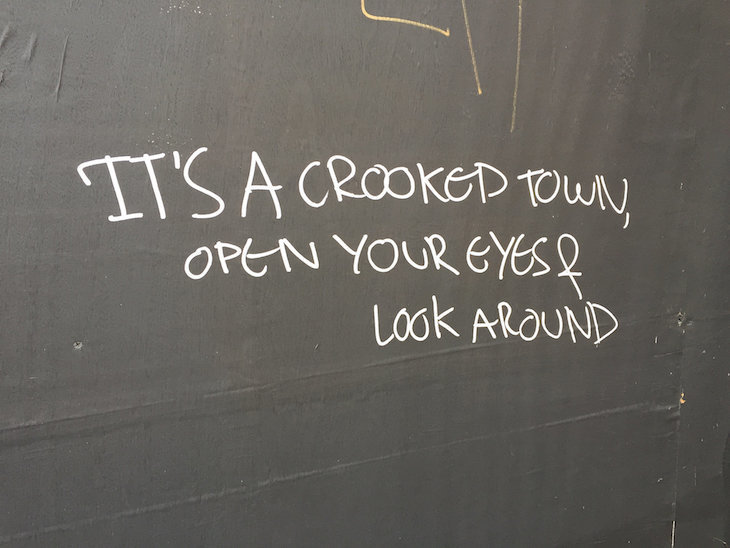 IT'S A CROOKED TOWN,
OPEN YOUR EYES &
LOOK AROUND